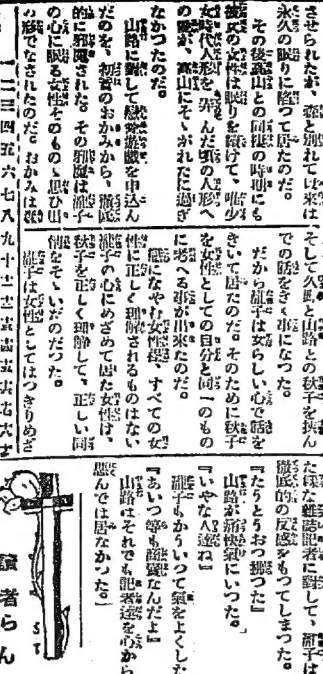 させられたが、森と別れて以來は
永久の眠りに陷つて居たのだ。
その後眞山との同棲の時期にも
彼女の女性は眠りを續けて、唯少
女時代人形を弄んだ頃の人形へ
の愛が、眞山にそゝがれたに過ぎ
なかつたのだ。
山路に對して戀愛遊戯を申込ん
だのを、初音のおかみから、徹底
的に邪魔された。その邪魔は龍子
の心に眠る女性そのものゝ思ひ出
の形でなされたのだ。おかみは
一二三四五六七八九十
そして久野と山路との秋子を挾ん
での話をきく事になつた。
だから龍子は女らしい心で話を
きいて居たのだ。そのために秋子
を女性としての自分と同一のもの
に考へる事が出來たのだ。
戀になやむ女性程、すべての女
性に正しく理解されるものはない
龍子の心にめざめて居た女性は、
秋子を正しく理解して、正しい同
情をそゝいだのだつた。
龍子は女性としてはつきりめざ
た樣な雜誌記者に對して、龍子は
徹底的の反感をもつてしまつた。
『たうとうおつ拂つた』
山路が痛快氣にいつた。
『いやな人達ね』
龍子もかういつて氣をよくした
『あいつ等も商賣なんだよ』
山路はそれでも記者達を心から
惡んでは居なかつた。
S T
讀者らん